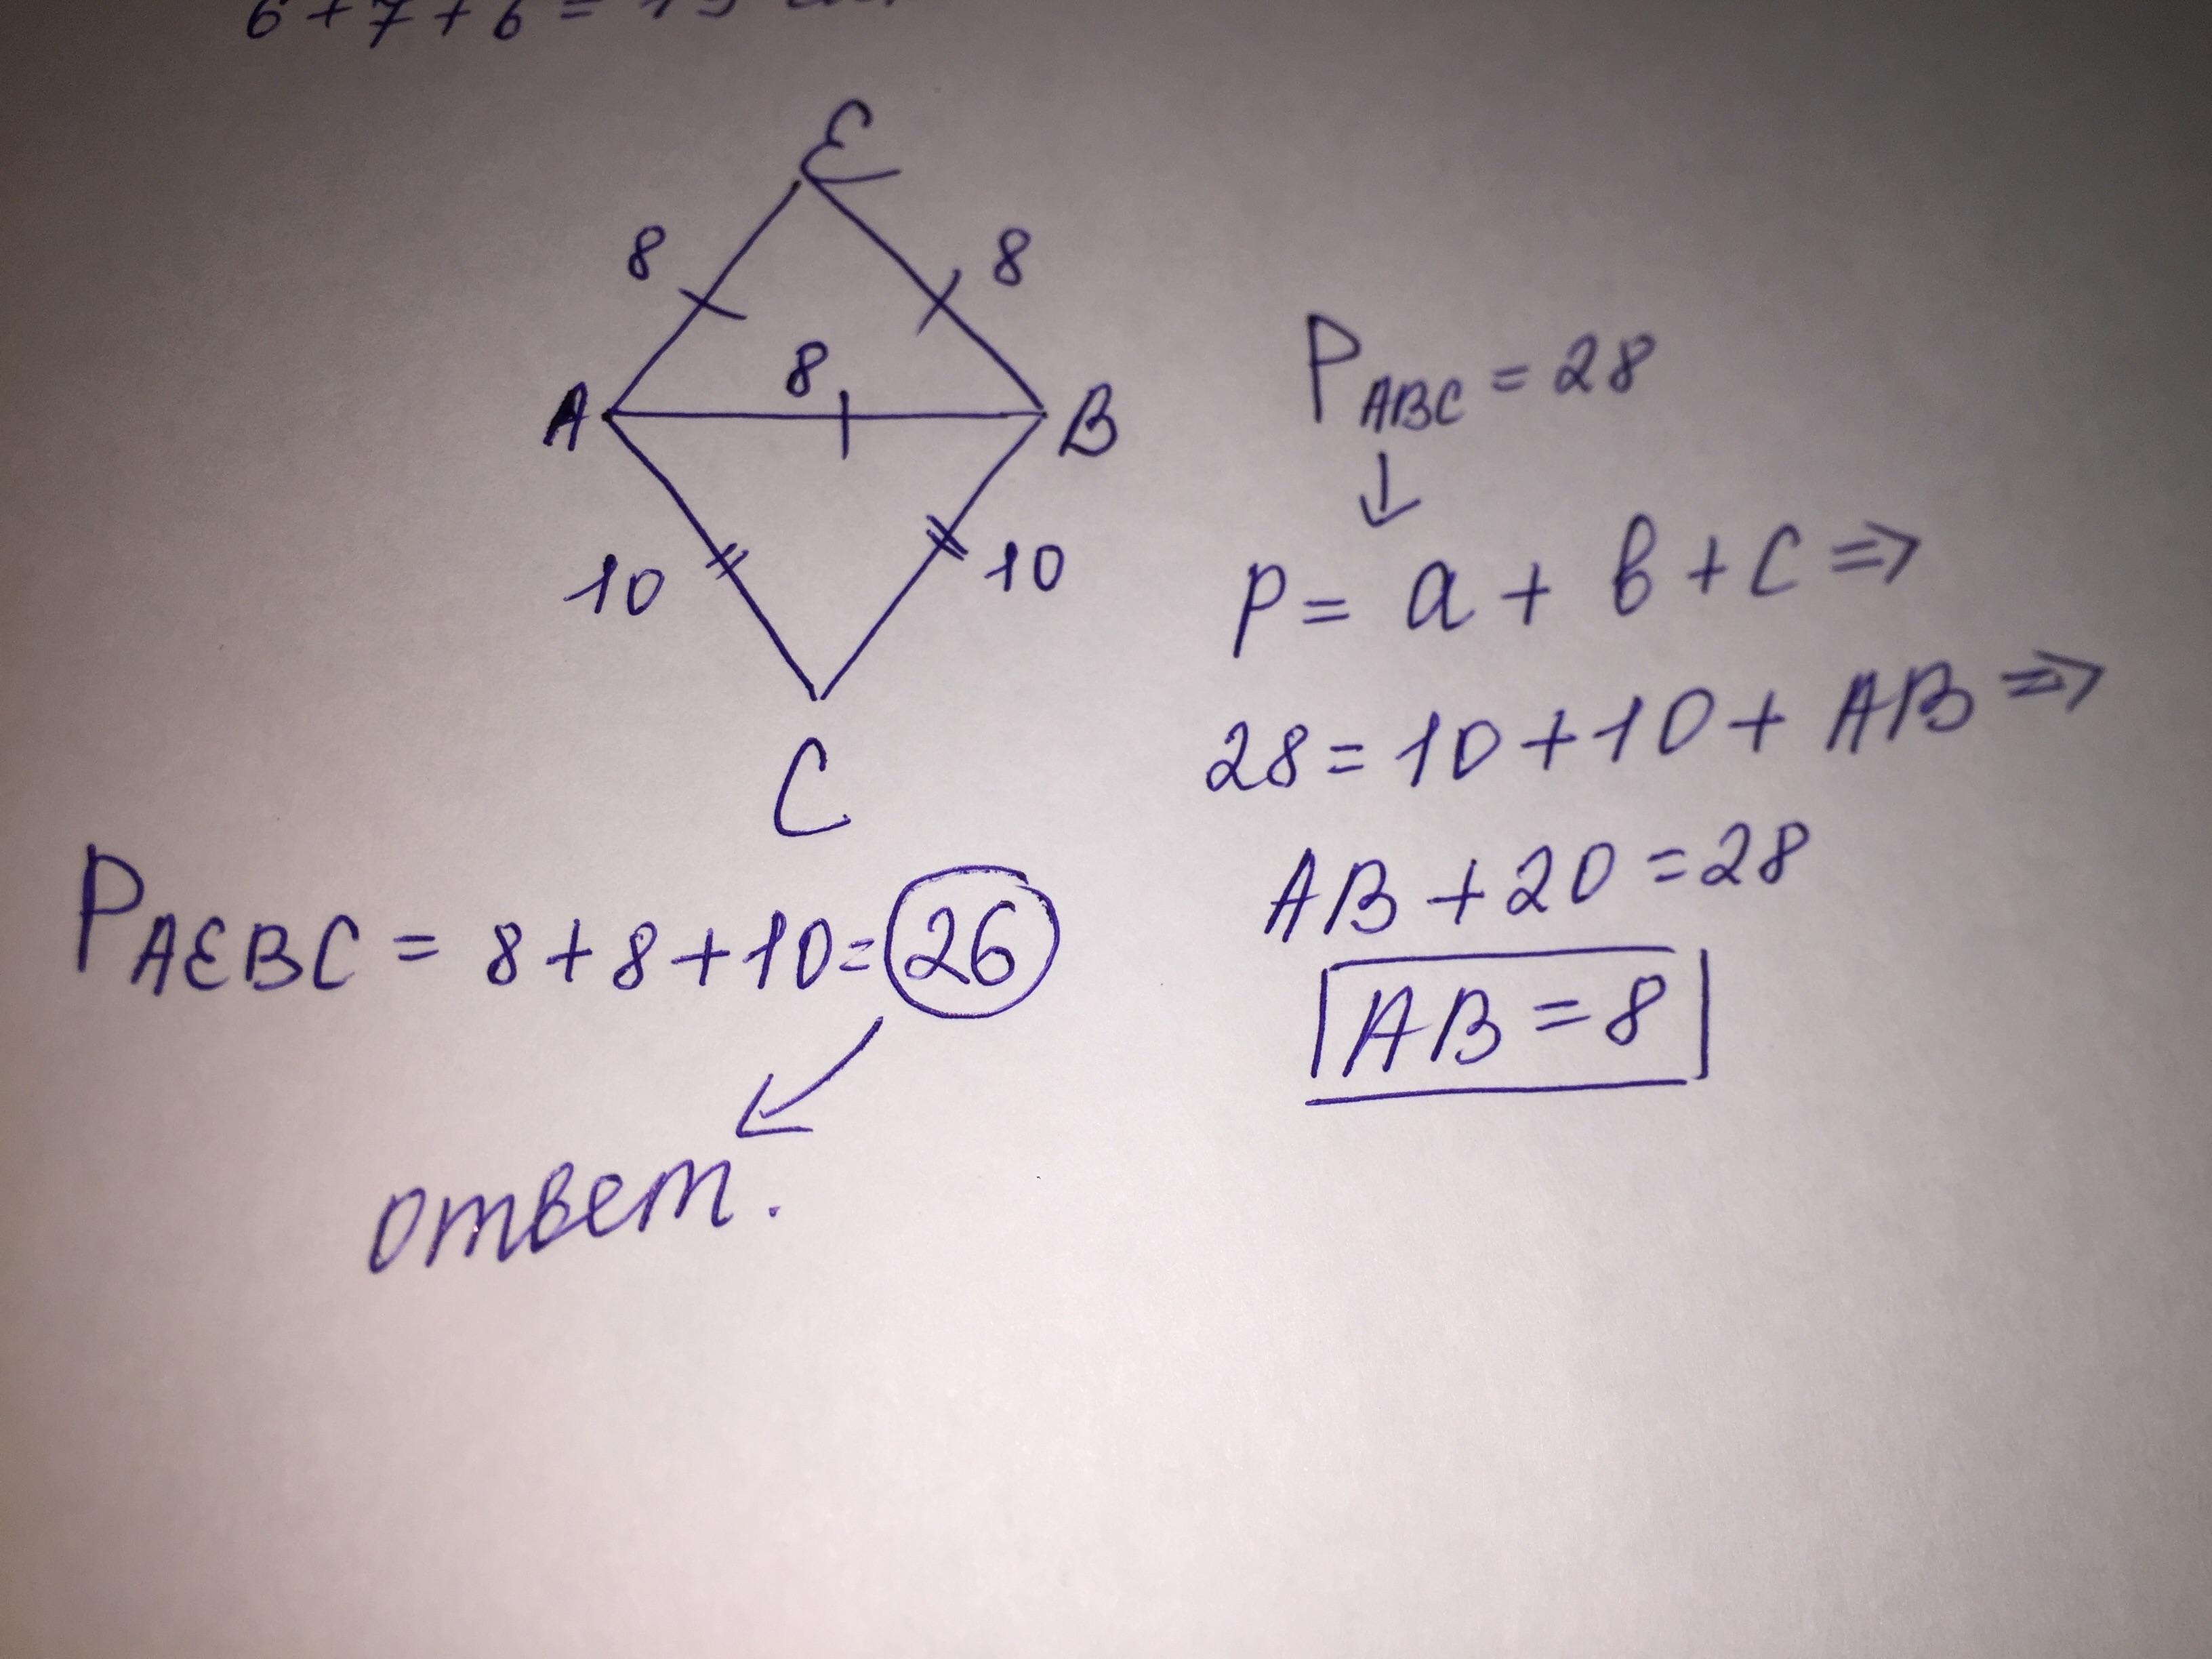 6+7+6=19
E
8 8
8
A B
10 10
C
P ABC = 28
↓
P = a + b + c ⇒
28 = 10 + 10 + AB ⇒
AB + 20 = 28
AB = 8
P AEBC = 8 + 8 + 10 = 26
ответ.